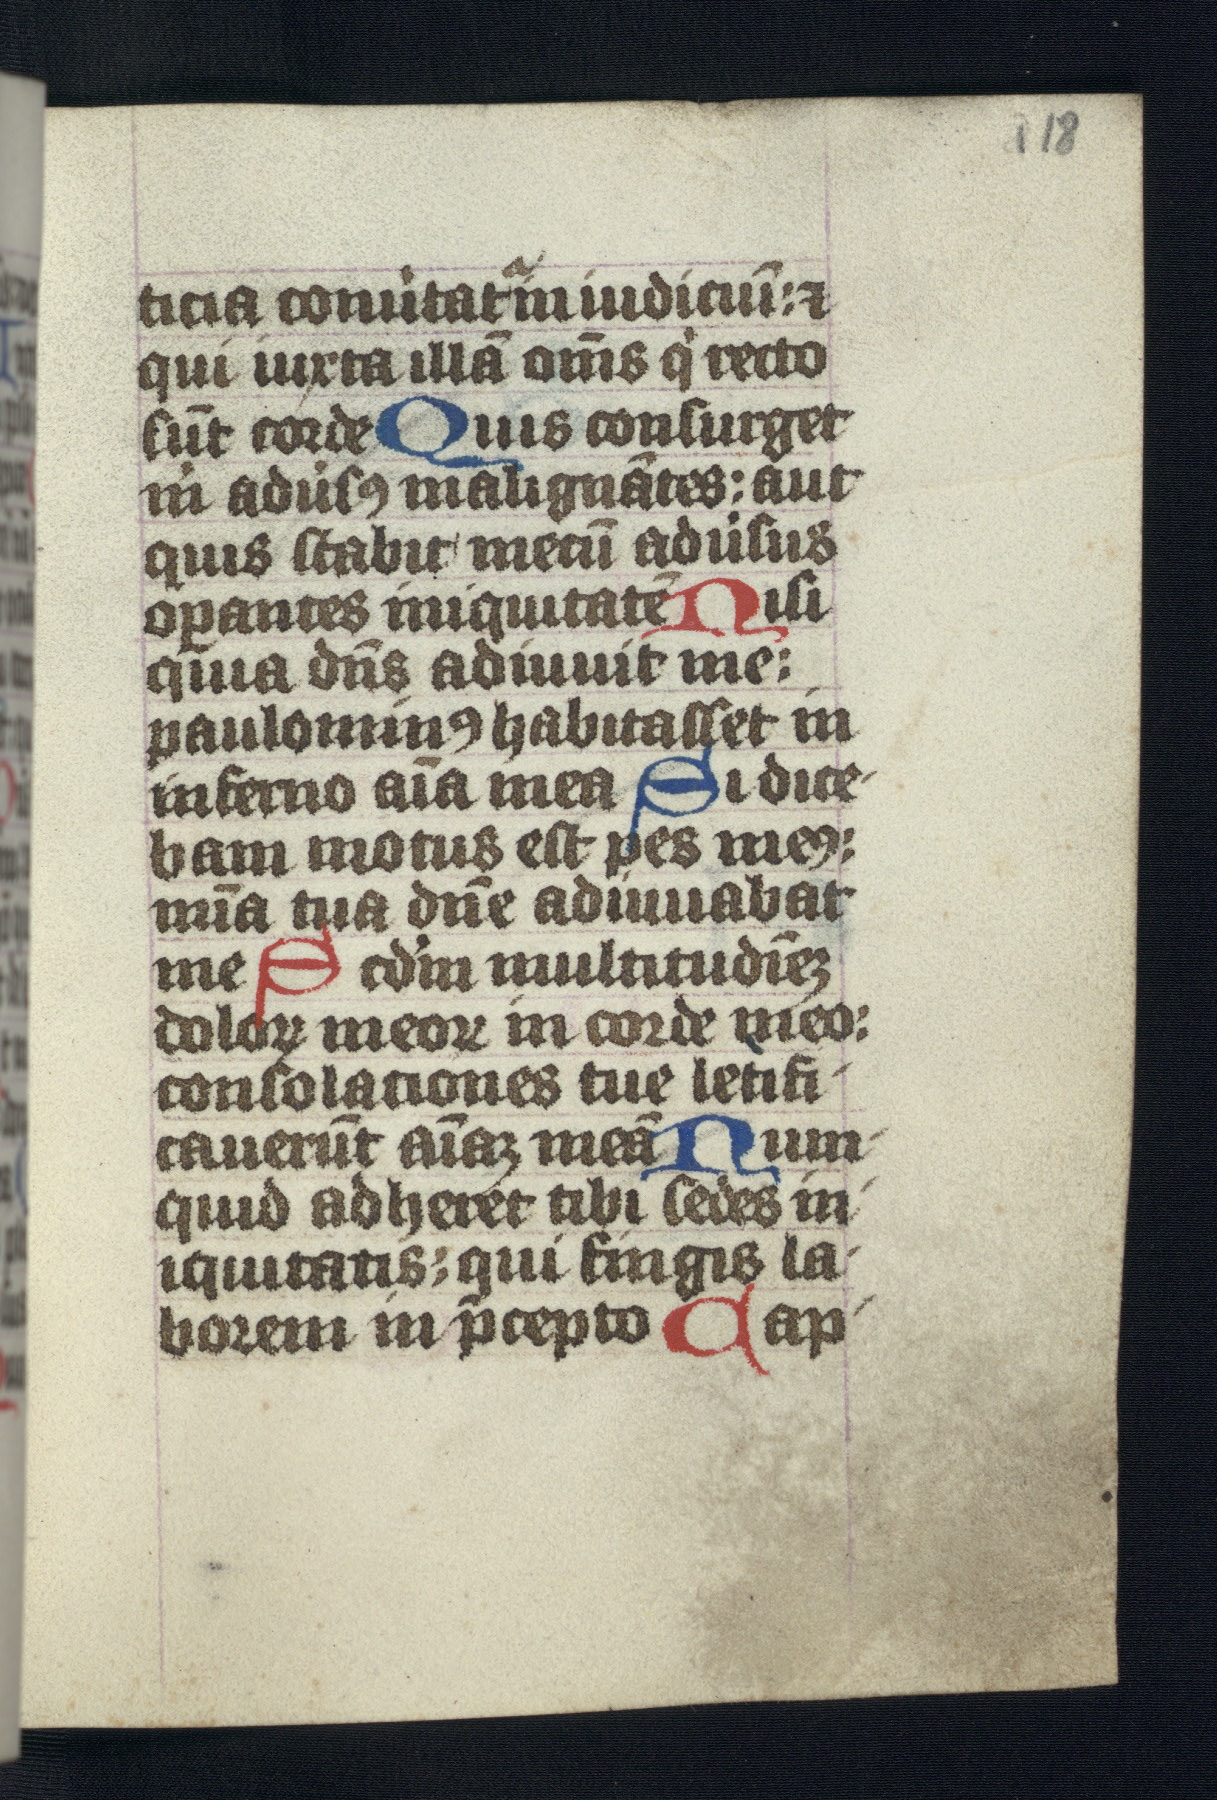 118
ticia conu̇tatᷓ in iudiciū: ⁊
qui iuxta illā om̄s qͥ recto
sūt corde Quis consurget
mͥ adu̇sꝰ malignātes: aut
quis stabit mecū adu̇sus
oꝑantes iniquitatē Nisi
quia dn̄s adiuuit me:
paulominꝰ habitasset in
inferno aīa mea Si dice-
bam motus est pes meꝰ:
mīa tua dn̄e adiuuabat
me Scd'm multitudīeꝫ
doloꝝ meoꝝ in corde meo:
consolationes tue letifi-
cauerūt aīaꝫ meā Num-
quid adheret tibi sedes in-
iquitatis: qui fingis la-
borem in p̄cepto Cap-